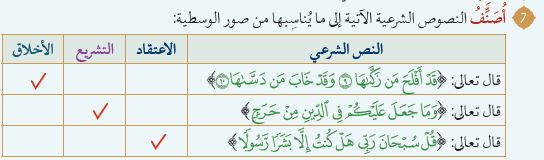 7 أُصَنِّفُ النصوص الشرعية الآتية إلى ما يُناسِبها من صور الوسطية:
النص الشرعي الاعتقاد التشريع الأخلاق
قال تعالى: ﴿قَدْ أَفْلَحَ مَن زَكَّىٰهَا ٩ وَقَدْ خَابَ مَن دَسَّىٰهَا ١٠﴾ ✓
قال تعالى: ﴿وَمَا جَعَلَ عَلَيْكُمْ فِي ٱلدِّينِ مِنْ حَرَجٍ﴾ ✓
قال تعالى: ﴿قُلْ سُبْحَانَ رَبِّي هَلْ كُنتُ إِلَّا بَشَرًا رَّسُولًا﴾ ✓